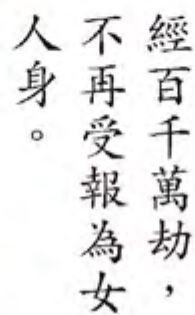 經百千萬劫，
不再受報為女
人身。